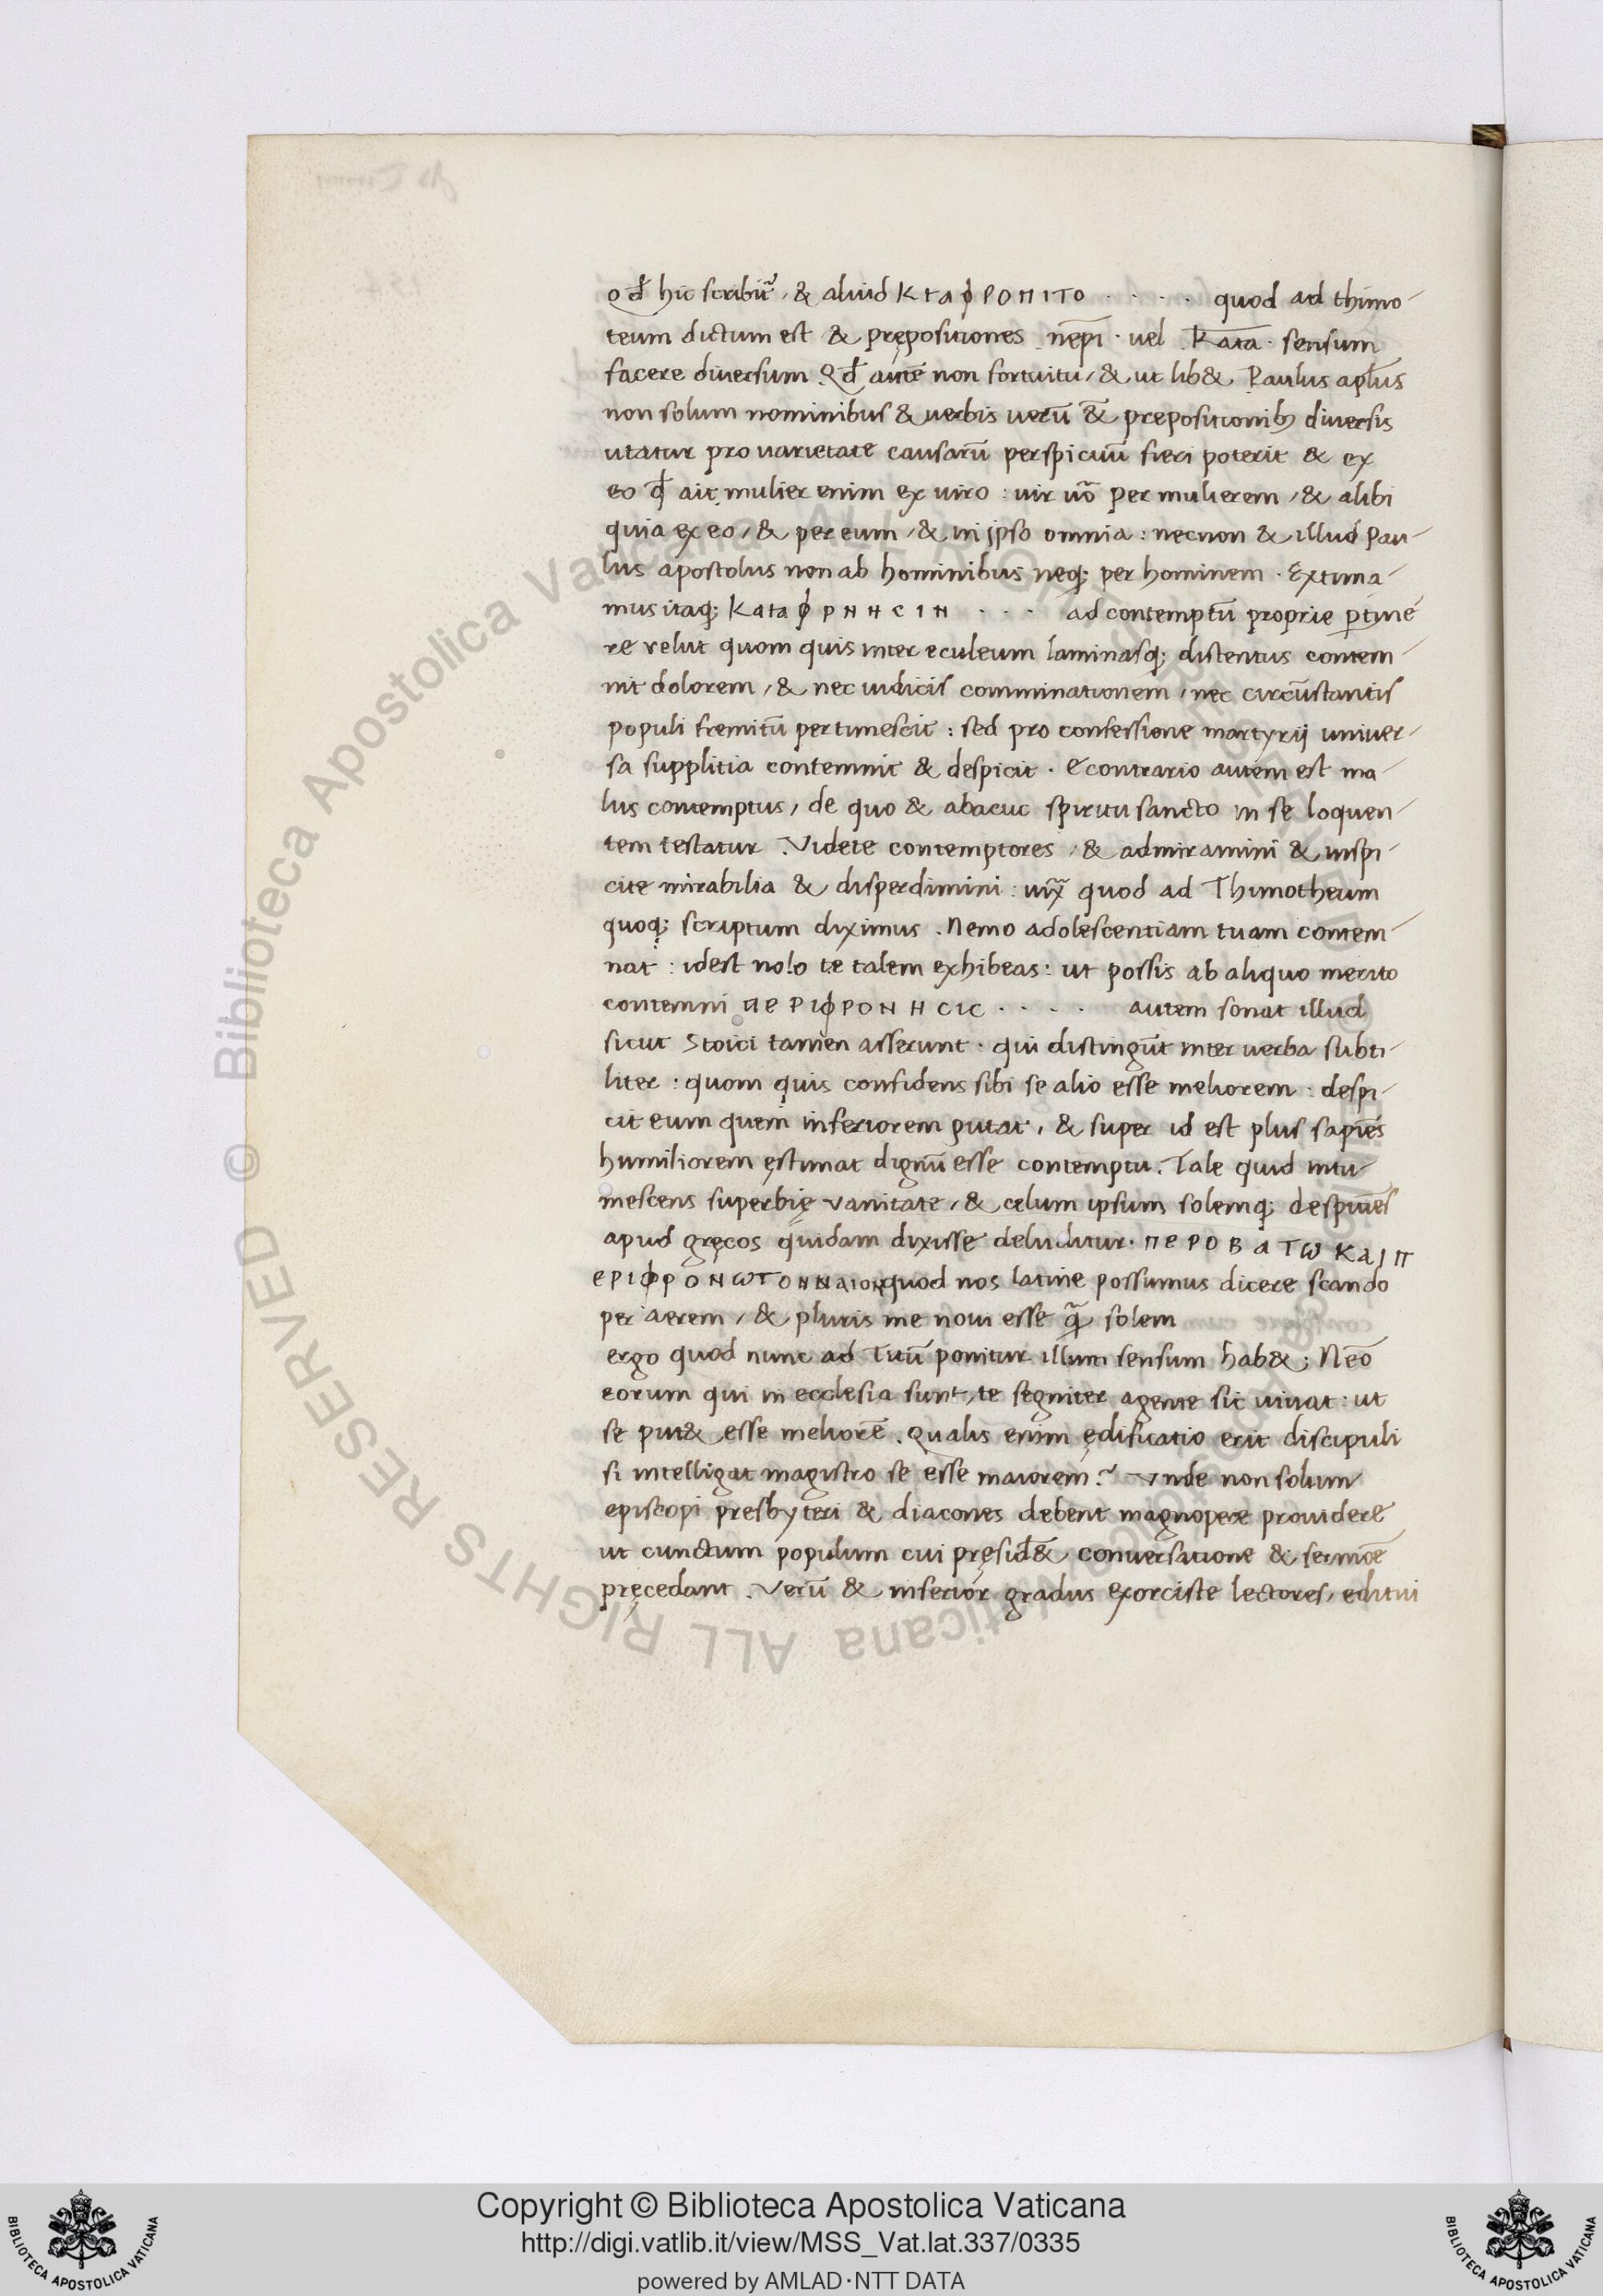 qđ hic scribit̃, & aliud ΚΤΑΦΡΟΠΙΤΟ · · · · quod ad thimo-
teum dictum est & pręposiciones nepi · uel Kata · sensum
facere diuersum. Qđ autē non fortuitu, & ut lib&, Paulus apl̃us
non solum nominibus & uerbis uerū & prepositionib; diuersis
utatur pro uarietate causarū perspicuū fieri poterit & ex
eo qđ ait mulier enim ex uiro : uir uõ per mulierem, & alibi
quia ex eo, & per eum, & in ipso omnia : necnon & illud Pau-
lus apostolus non ab hominibus neq; per hominem · Extima-
mus itaq; Kata φ ρ Ν Η C Ι Ν · · · ad contemptū proprie ꝑtine-
re velut quom quis inter eculeum laminasq; distentus contem-
nit dolorem, & nec iudicis comminationem, nec circūstantis
populi fremitū pertimescit : sed pro confessione martyrij uniuer-
sa supplitia contemnit & despicit · e contrario autem est ma-
lus contemptus, de quo & abacuc spiritu sancto in se loquen-
tem testatur. Videte contemptores, & admiramini & inspi-
cite mirabilia & disperdimini : quod ad Thimotheum
quoq; scriptum diximus. Nemo adolescentiam tuam contem-
nat : idest nolo te talem exhibeas : ut possis ab aliquo merito
contemni ΠΕΡΙΦΡΟΝΗCΙC · · · · autem sonat illud
sicut Stoici tamen asserunt · qui distingūt inter uerba subti-
liter : quom quis confidens sibi se alio esse meliorem : despi-
cit eum quem inferiorem putat, & super id est plus sapiēs
humiliorem ęstimat dignū esse contemptu. Tale quid intu-
mescens superbię vanitate, & celum ipsum solemq; despiciēs
apud gręcos quidam dixisse deluditur · ΠΕΡΟΒΑΤω ΚΑΙΠ
ΕΡΙΦΡΟΝωΤΟΝΝΑΙΟΝ quod nos latine possumus dicere scando
per aerem, & pluris me noui esse q̃ solem
ergo quod nunc ad Titū ponitur illum sensum hab&; Neõ
eorum qui in ecclesia sunt, te segniter agente sic uiuat : ut
se put& esse meliorē. Qualis enim ędificatio erit discipuli
si intelligat magistro se esse maiorem? Vnde non solum
episcopi presbyteri & diacones debent magnopere prouidere
ut cunctum populum cui pręsid& conuersatione & sermōe
pręcedant. Verū & inferior gradus exorciste lectores, editui
Copyright © Biblioteca Apostolica Vaticana
http://digi.vatlib.it/view/MSS_Vat.lat.337/0335
powered by AMLAD·NTT DATA
BIBLIOTECA APOSTOLICA VATICANA
BIBLIOTECA APOSTOLICA VATICANA
© Biblioteca Apostolica Vaticana ALL RIGHTS RESERVED